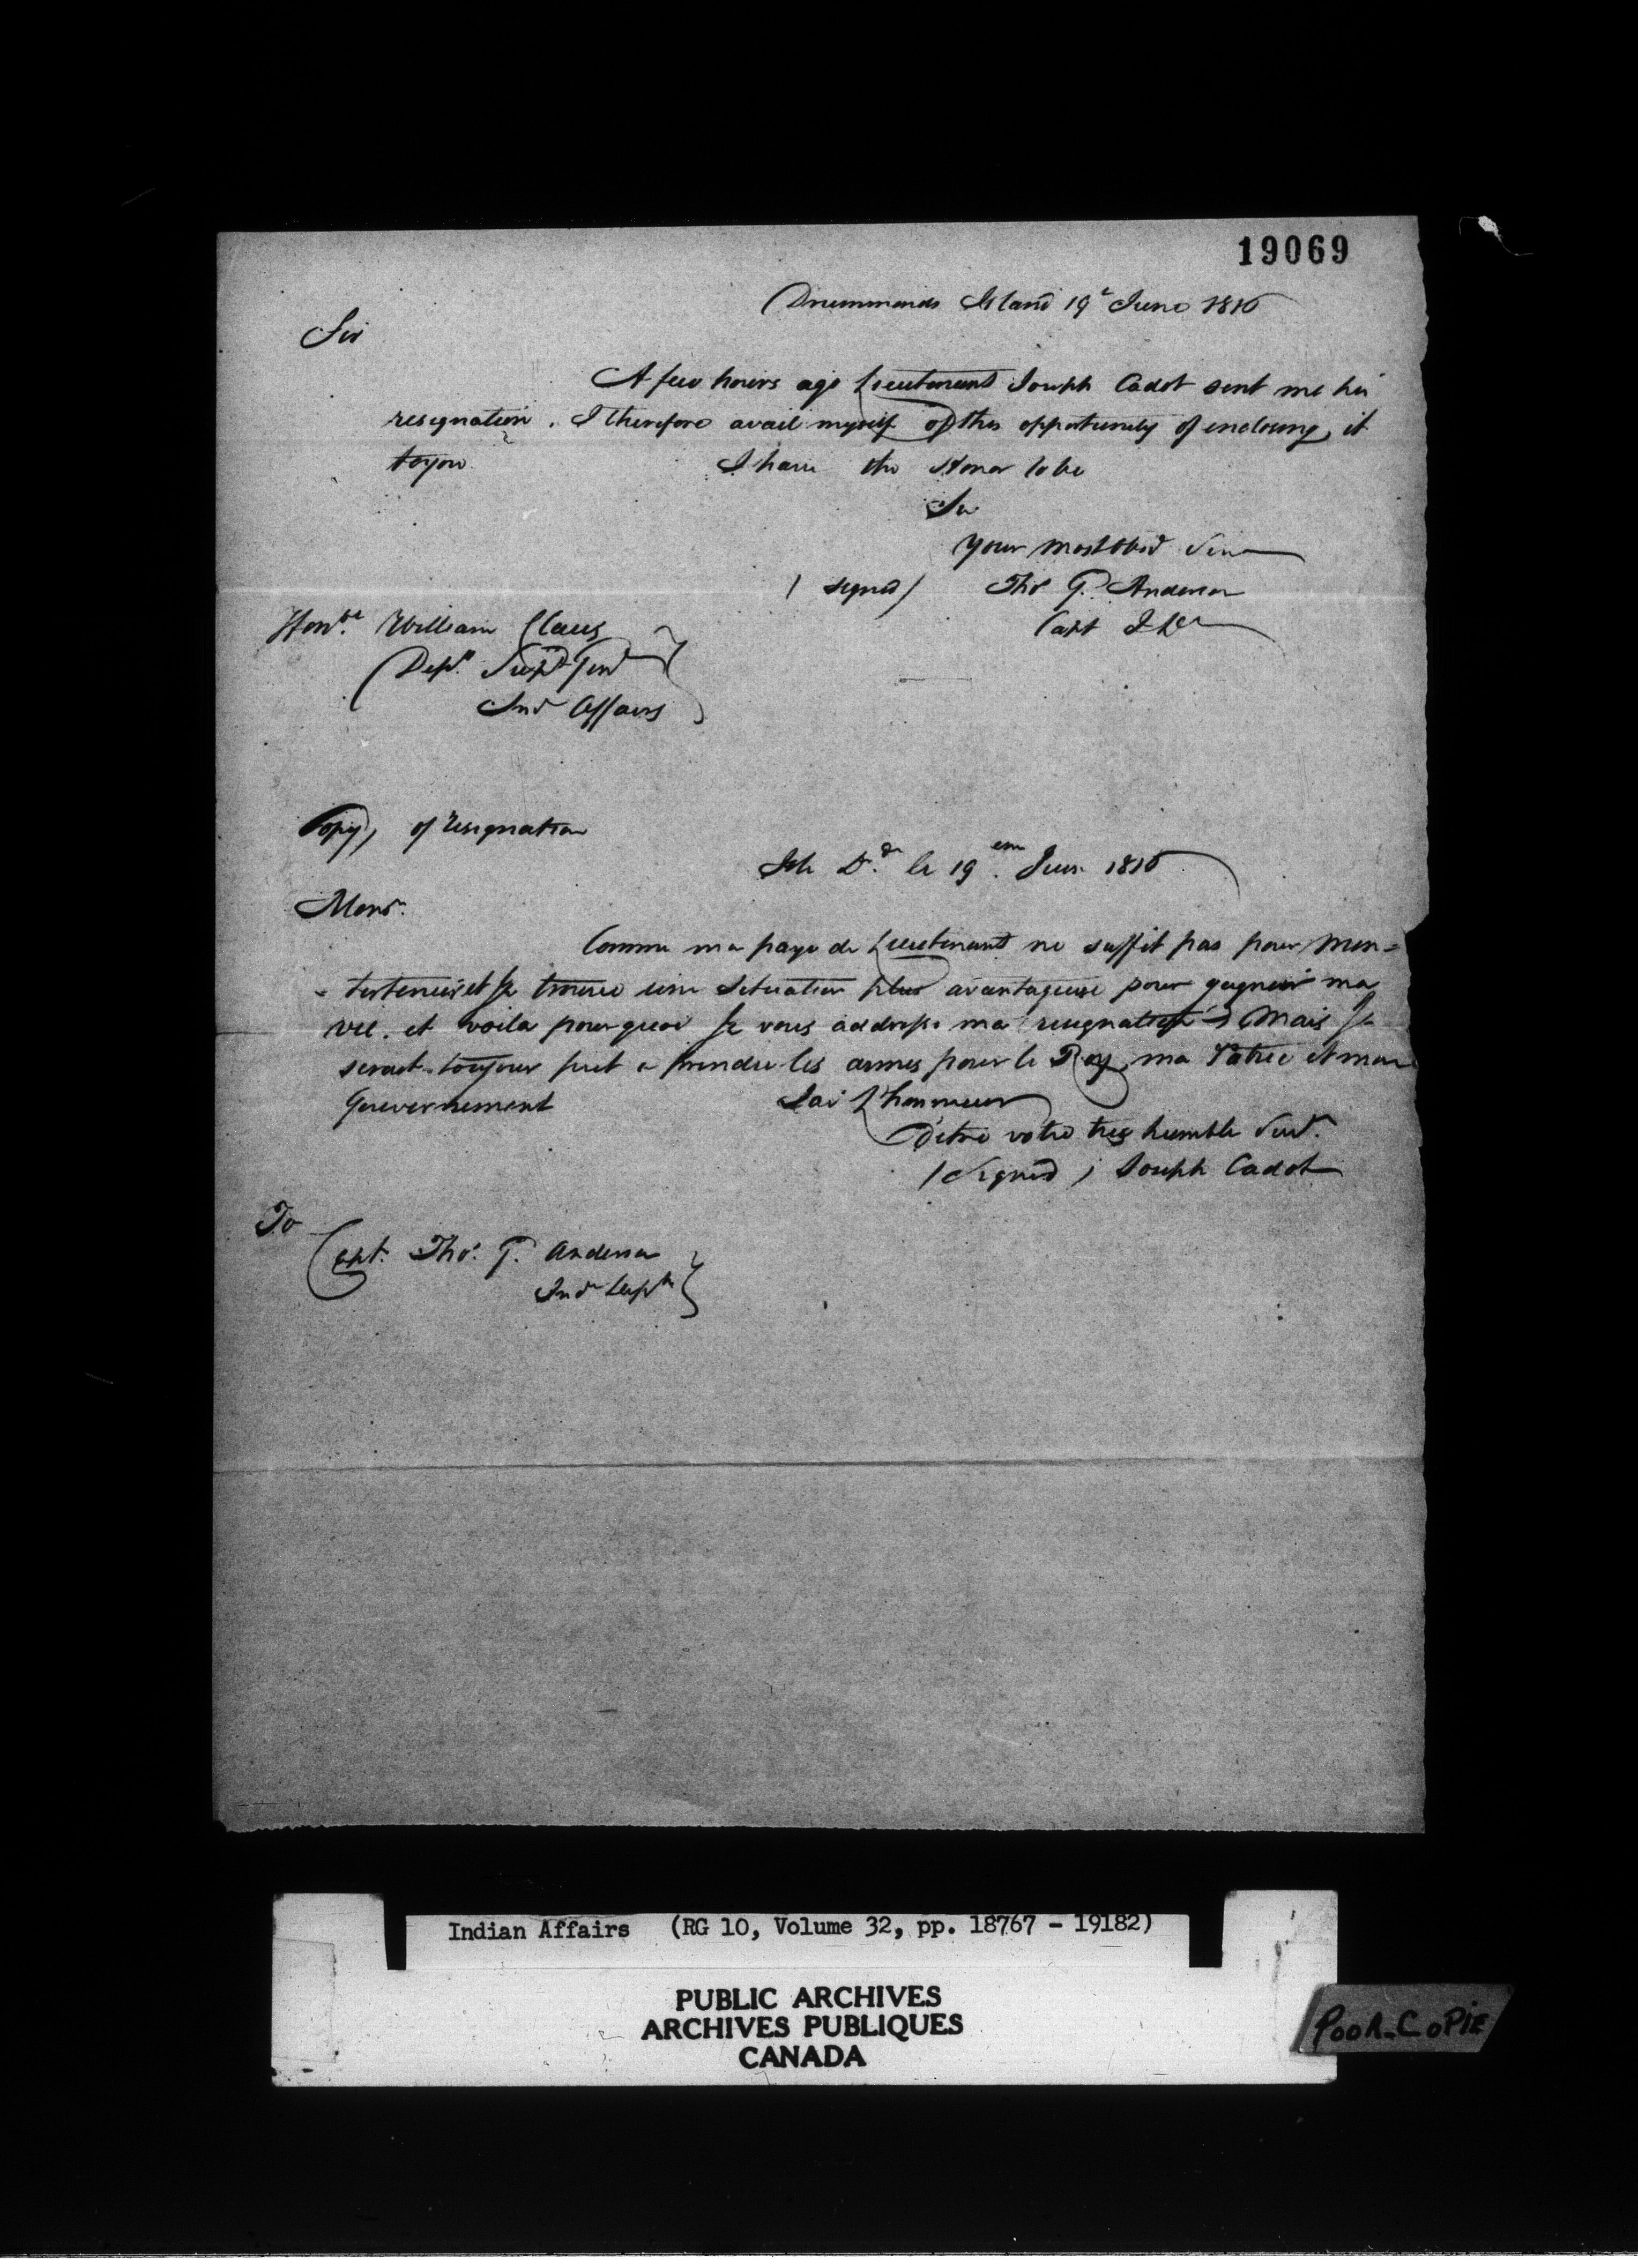 19069
Drummonds Island 19th June 1816
Sir
A few hours ago Lieutenant Joseph Cadot sent me his
resignation. I therefore avail myself of this opportunity of enclosing it
to you. I have the Honor to be
Sir
Your most Obdt Serv
/ signed / Thos G. Anderson
Capt I De
Honble William Claus
Depy Supt Genl
Ind Affairs
Copy, of resignation
Isle Dde le 19em Juin 1816
Monsr.
Comme ma paye de Lieutenant ne suffit pas pour men=
=tretenir et Je trouve une situation plus avantageuse pour gagner ma
vie. et voila pourquoi Je vous addresse ma resignation Mais Je
serait toujour pret a prendre les armes pour le Roy, ma Patrie et mon
Gouvernement Jai L'honneur
D'etre votre tres humble Servt.
/ Signed / Joseph Cadot
To
Capt. Thos. G. Anderson
Indn Dept
Indian Affairs (RG 10, Volume 32, pp. 18767 - 19182)
PUBLIC ARCHIVES
ARCHIVES PUBLIQUES
CANADA
POOR-COPIE